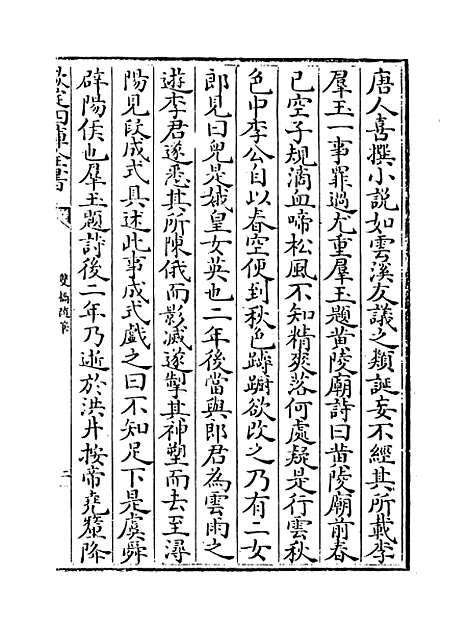 唐人喜撰小説如雲溪友議之類誕妄不經其所載李
羣玉一事罪過尤重羣玉題黄陵廟詩曰黄陵廟前春
已空子規滴血啼松風不知精爽落何處疑是行雲秋
色中李公自以春空便到秋色踌蹰欲改之乃有二女
郎見曰兒是娥皇女英也二年後當與郎君為雲雨之
遊李君遂悉其所陳俄而影滅遂掣其神塑而去至潯
陽見段成式具述此事成式戲之曰不知足下是虞舜
辟陽侯也羣玉題詩後二年乃逝於洪井按帝堯釐降
欽定四庫全書
雙橋随筆
二